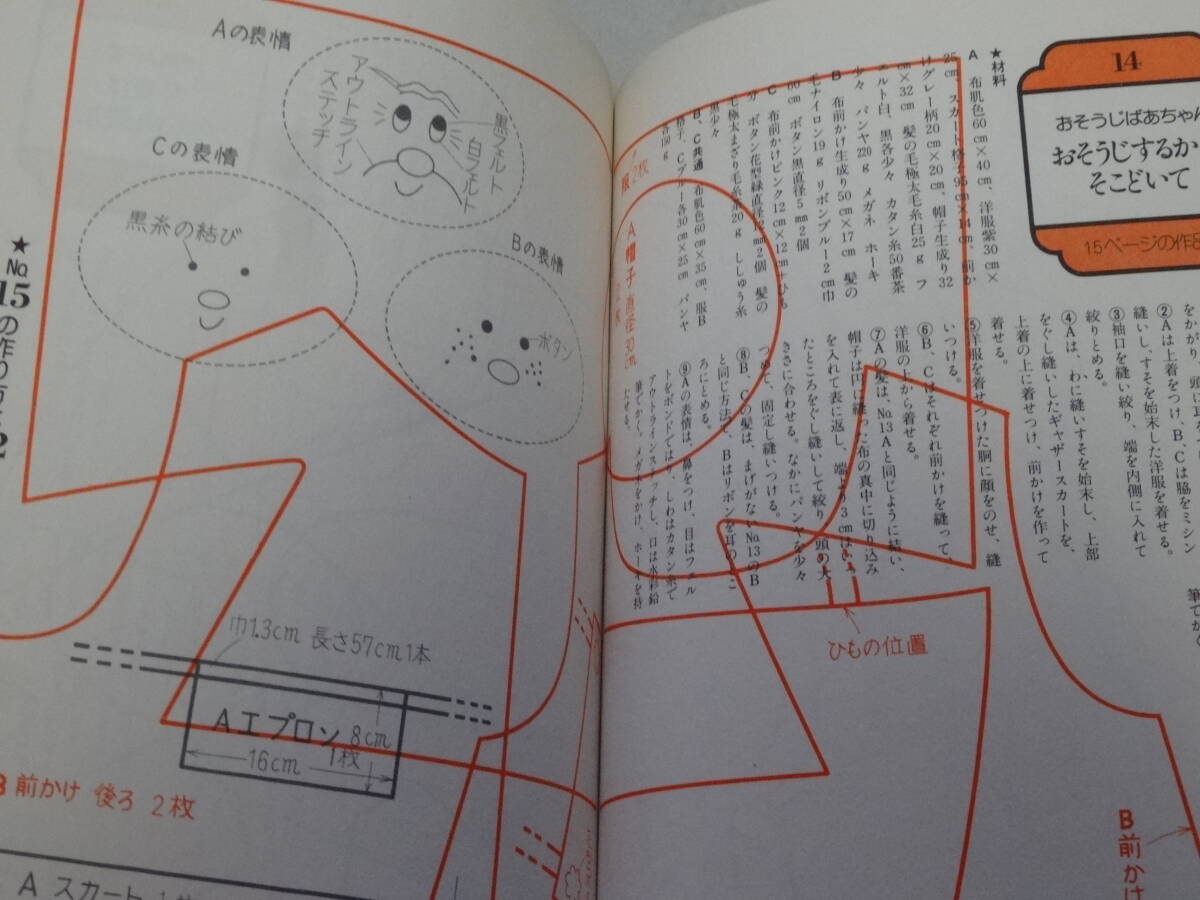 14
おそうじばあちゃん
おそうじするか
そこどいて
15ページの作
★材料
A　布肌色60cm×40cm、洋服紫30cm×
25cm、スカート格子95cm×14cm、前か
けグレー柄20cm×20cm、帽子生成り32
cm×32cm　髪の毛極太毛糸白25g　フ
ェルト白、黒各少々　カタン糸50番茶
少々　パンヤ220g　メガネ　ホーキ
B　布前かけ生成り50cm×17cm　髪の
毛ナイロン19g　リボンブルー2cm巾
60cm　ボタン黒直径5mm2個
C　布前かけピンク12cm×12cm＋ひも
分　ボタン花型縁直径12mm2個　髪の
毛極太まざり毛糸茶20g　ししゅう糸
黒少々
B、C共通　布肌色60cm×35cm、服B
格子、Cブルー各30cm×25cm　パンヤ
各150g
②Aは上着をつけ、B、Cは脇をミシン
縫いし、すそを始末した洋服を着せる。
③袖口を縫い絞り、端を内側に入れて
絞りとめる。
④Aは、わに縫いすそを始末し、上部
をぐし縫いしたギャザースカートを、
上着の上に着せつけ、前かけを作って
着せる。
⑤洋服を着せつけた胴に顔をのせ、縫
いつける。
⑥B、Cはそれぞれ前かけを縫って、
洋服の上から着せる。
⑦Aの髪は、No.13Aと同じように結い、
帽子は円に縫った布の真中に切り込み
を入れて表に返し、端より3cmはいっ
たところをぐし縫いして絞り、頭の大
きさに合わせる。なかにパンヤを少々
つめて、固定し縫いつける。
⑧B、Cの髪は、まげがないNo.13のB
と同じ方法で、Bはリボンを耳のとこ
ろにとめる。
⑨Aの表情は、鼻をつけ、目はフェル
トをボンドではり、しわはカタン糸で
アウトラインステッチし、口は水彩鉛
筆でかく。メガネをかけ、ホーキを持
たせる。
Aの表情
アウトライン
ステッチ
黒フェルト
白フェルト
Cの表情
黒糸の結び
Bの表情
ボタン
★No.15の作り方
2
巾1.3cm 長さ57cm1本
Aエプロン
1枚
8cm
16cm
B 前かけ 後ろ 2枚
A スカート
2枚
A 帽子 直径30cm
ひもの位置
B 前かけ